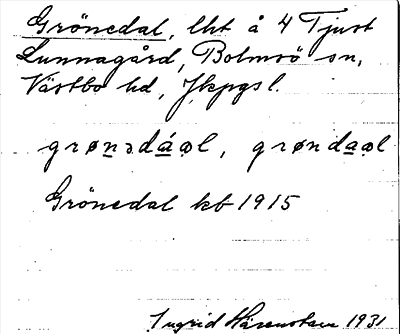 Grönedal, lht å 4 Tjust
Lunnagård, Bolmsö sn,
Västbo hd, Jkpgs l.
grønədáạl, grøndaạl
Grönedal kb 1915
Ingrid 1931